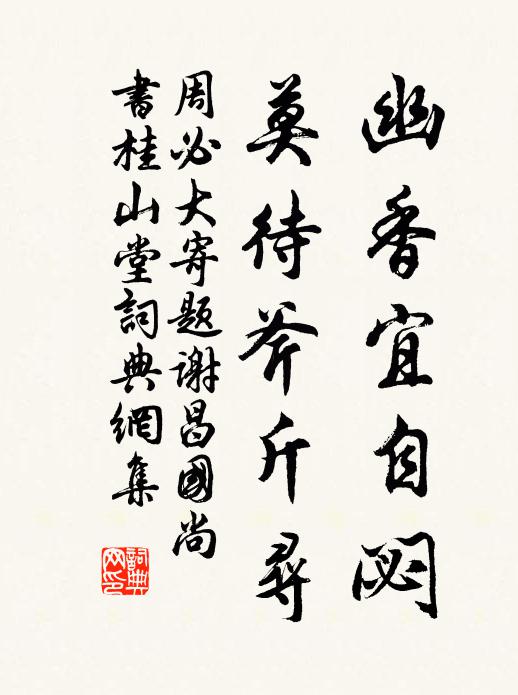 幽香宜自閟
莫待斧斤尋
周必大寄题谢昌國尚
書桂山堂詞典網集
詞典
网印